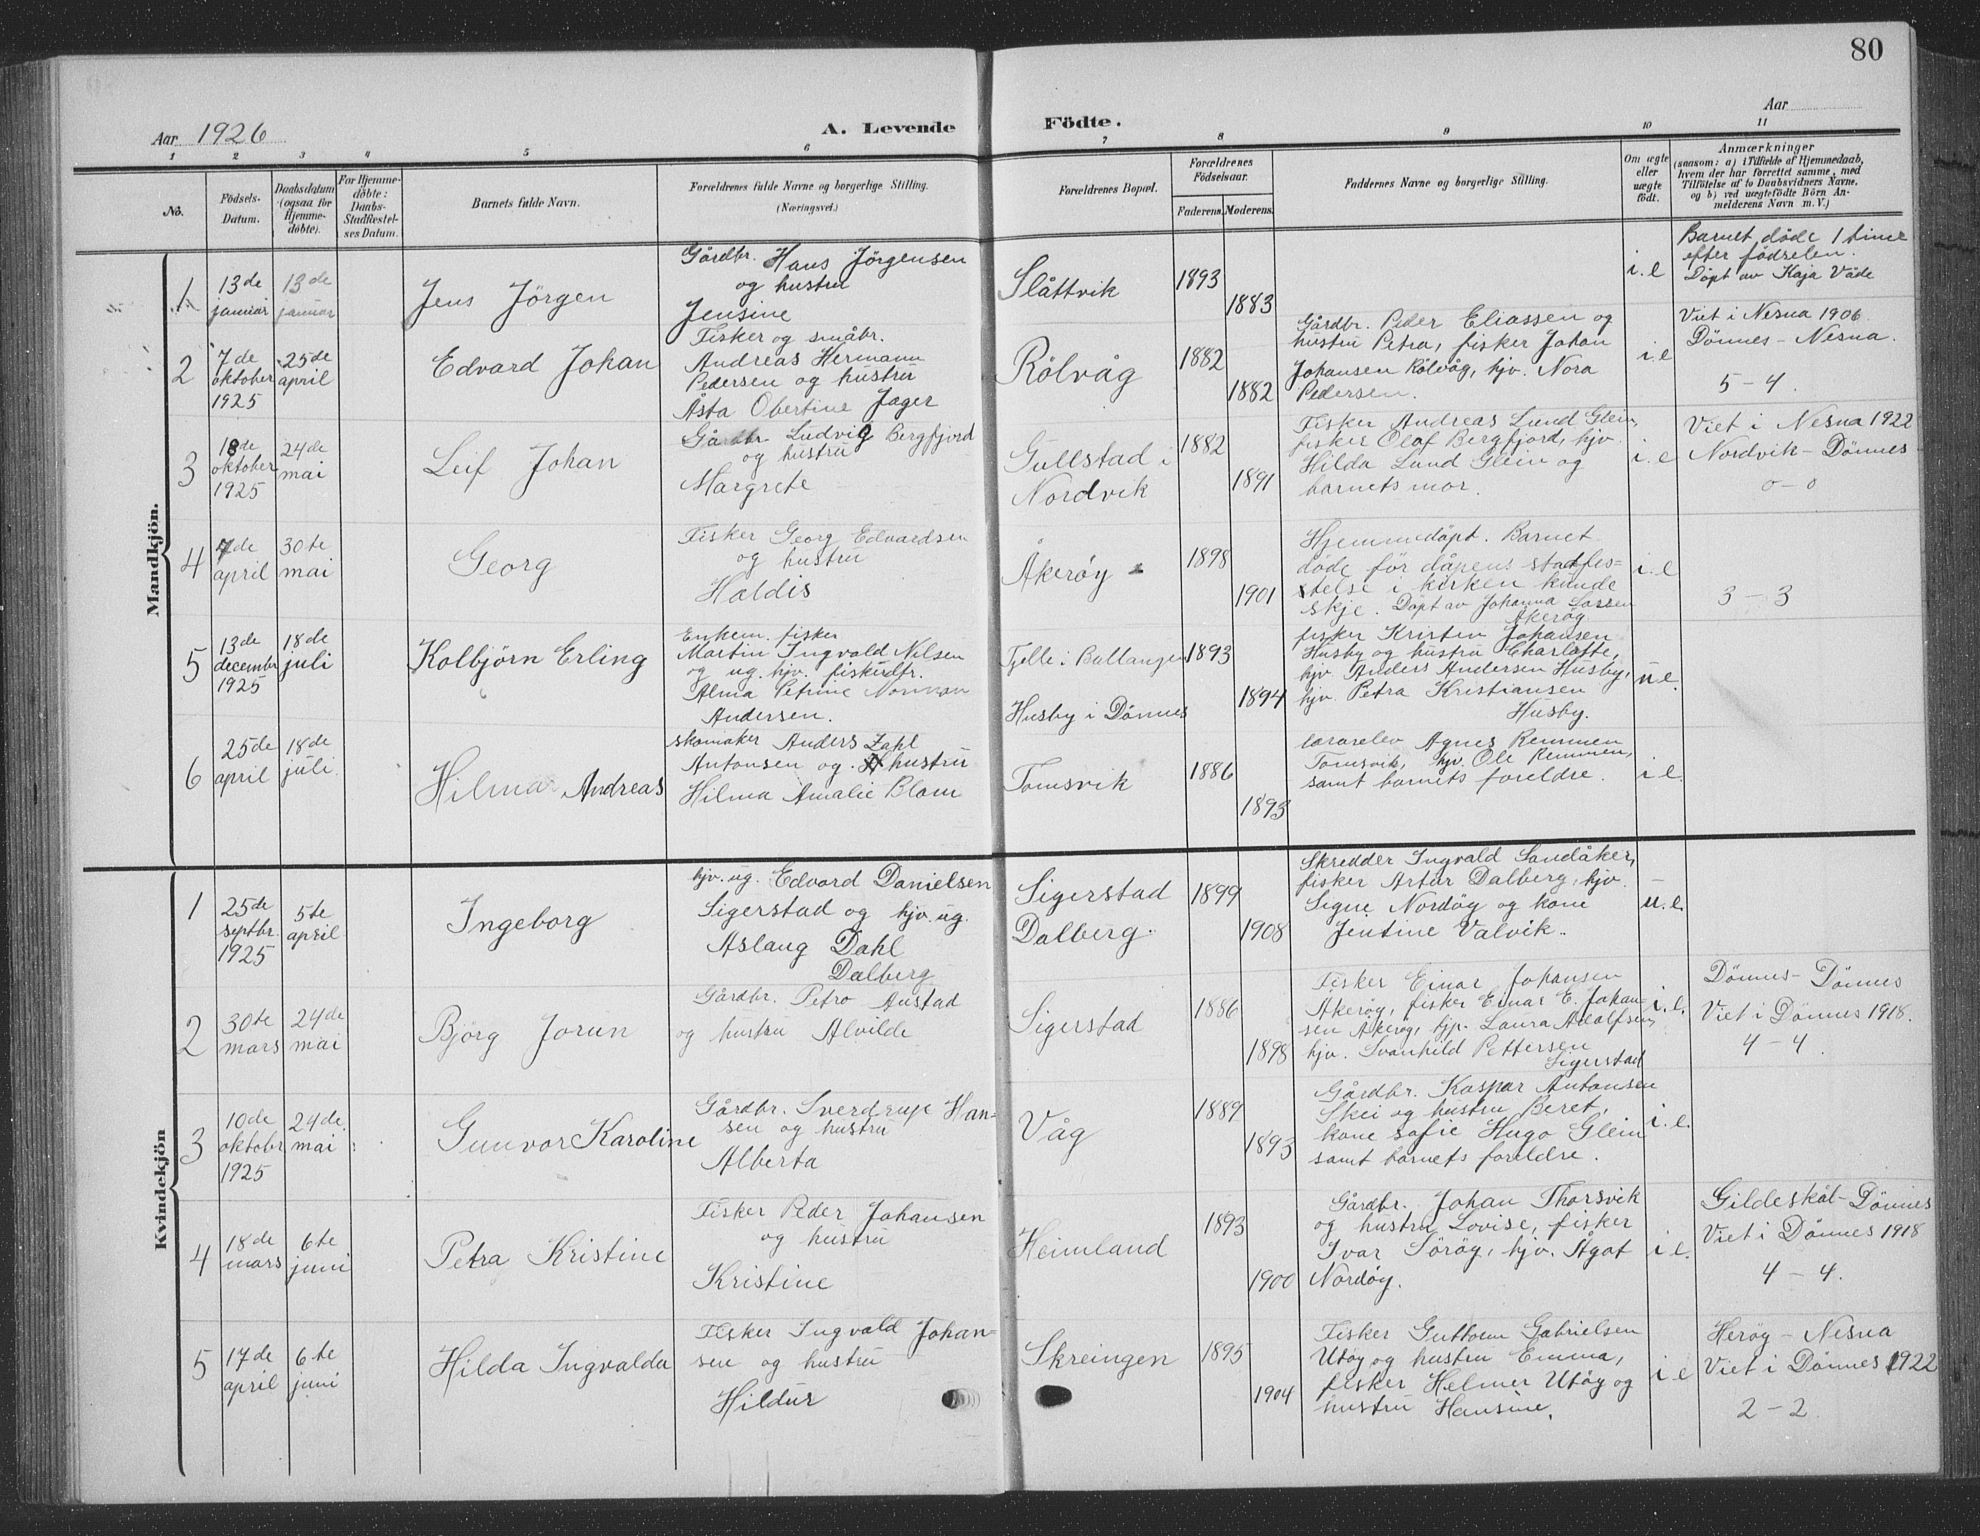 80
Aar 1926
A. Levende
Födte.
Aar
1 2 3 4 5 6 7 8 9 10 11
No.
Födsels-
Datum.
Daabsdatum
(ogsaa for
Hjemme-
döbte).
For Hjemme-
döbte:
Daabs-
Stadfæstel-
ses Datum.
Barnets fulde Navn.
Forældrenes fulde Navne og borgerlige Stilling.
(Næringsvei.)
Forældrenes Bopæl.
Forældrenes
Födselsaar.
Faderens. Moderens.
Faddernes Navne og borgerlige Stilling.
Om ægte
eller
uægte
födt.
Anmærkninger
(saasom: a) i Tilfælde af Hjemmedaab,
hvem der har forrettet samme, med
Tilföielse af to Daabsvidners Navne,
og b) ved uægtefödte Börn An-
melderens Navn m. V.)
Mandkjön.
1
13de
januar
13de
januar
Jens Jörgen
Gårdbr. Hans Jörgensen
og hustru
Jensine
Slåttvik
1893
1883
i.e
Barnet döde 1 time
efter födselen.
Döpt av Kaja Våde
2
7de
oktober
1925
25de
april
Edvard Johan
Fisker og småbr.
Andreas Hermann
Pedersen og hustru
Åsta Obertine Jager
Rölvåg
1882
1882
Gårdbr. Peder Eliassen og
hustru Petra, fisker Johan
Johansen Rölvåg, hjv. Nora
Pedersen.
i.e
Viet i Nesna 1906.
Dönnes - Nesna.
5 - 4.
3
18de
oktober
1925
24de
mai
Leif Johan
Gårdbr. Ludvig Bergfjord
og hustru
Margrete
Gullstad i
Nordvik
1882
1891
Fisker Andreas Lund Glein,
fisker Olaf Bergfjord, hjv.
Hilda Lund Glein og
barnets mor.
i.e
Viet i Nesna 1922
Nordvik - Dönnes
0 - 0
4
7de
april
30te
mai
Georg
Fisker Georg Edvardsen
og hustru
Haldis
Åkeröy
1898
1901
Hjemmedöpt. Barnet
döde för dåpens stadfes-
telse i kirken kunde
skje. Döpt av Johanna Larsen
Åkeröy
i.e
3 - 3
5
13de
decembr
1925
18de
juli
Kolbjörn Erling
Enkem. fisker
Martin Ingvald Nilsen
og ug. hjv. fiskerdtr.
Alma Petrine Norman
Andersen.
Tjelle i Ballangen
Husby i Dönnes
1893
1894
fisker Kristen Johansen
Husby og hustru Charlotte,
hjv. Anders Andersen Husby,
hjv. Petra Kristiansen
Husby.
u.e.
6
25de
april
18de
juli
Hilmar Andreas
skomaker Anders Zahl
Antonsen og hustru
Hilma Amalie Blom
Tomsvik
1886
1893
lærerelev Agnes Remmen
Tomsvik, hjv. Ole Remmen,
samt barnets foreldre.
i.e.
Kvindekjön
1
25de
septbr.
1925
5te
april
Ingeborg
hjv. ug. Edvard Danielsen
Sigerstad og hjv. ug.
Aslaug Dahl
Dalberg
Sigerstad
Dalberg.
1899
1908
Skredder Ingvald Sandåker,
fisker Artur Dalberg, hjv.
Signe Nordöy og kone
Jentine Valvik.
u.e.
2
30te
mars
24de
mai
Björg Jorun
Gårdbr. Petro Austad
og hustru Alvilde
Sigerstad
1886
1898
Fisker Einar Johansen
Åkeröy, fisker Einar E. Johan-
sen Åkeröy, hjv. Laura Adolfsen,
hjv. Svanhild Pettersen
Sigerstad
i.e.
Dönnes - Dönnes
Viet i Dönnes 1918.
4 - 4.
3
10de
oktobr
1925
24de.
mai
Gunvor Karoline
Gårdbr. Sverdrup Han-
sen og hustru
Alberta
Våg
1889
1893
Gårdbr. Kaspar Antonsen
Skei og hustru Beret,
kone Sofie Hugo Glein
samt barnets foreldre.
i.e.
4
18de
mars
6te
juni
Petra Kristine
Fisker Peder Johansen
og hustru
Kristine
Heimland
1893
1900
Gårdbr. Johan Thorsvik
og hustru Lovise, fisker
Ivar Söröy, hjv. Ågot
Nordöy.
i.e.
Gildeskål - Dönnes
Viet i Dönnes 1918
4 - 4.
5
17de
april
6te
juni
Hilda Ingvalda
Fisker Ingvald Johan-
sen og hustru
Hildur
Skreingen
1895
1904
Fisker Guttorm Gabrielsen
Utöy og hustru Emma,
fisker Helmer Utöy og
hustru Hansine.
i.e
Heröy - Nesna
Viet i Dönnes 1922
2 - 2